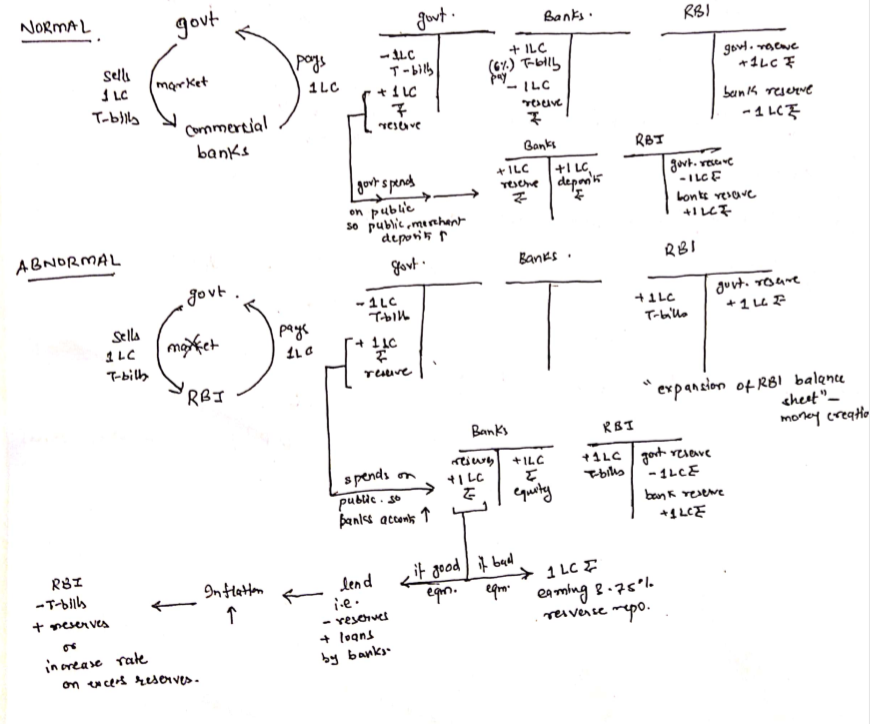 NORMAL.
govt
sells
1LC
T-bills
market
pays
1LC
commercial
banks
govt.
-1LC
T-bills
+ 1LC
₹
reserve
Banks.
+ 1LC
(6%) T-bills
pay
- 1LC
reserve
₹
RBI
govt. reserve
+1LC ₹
bank reserve
- 1LC ₹
govt spends
on public
so public, merchant
deposits ↑
Banks
+1LC
reserve
₹
+1LC
deposits
₹
RBI
govt. reserve
-1LC ₹
banks reserve
+1LC ₹
ABNORMAL
govt.
sells
1LC
T-bills
market
pays
1LC
RBI
govt.
-1LC
T-bills
+ 1LC
₹
reserve
Banks.
RBI
+1LC
T-bills
govt. reserve
+1LC ₹
"expansion of RBI balance
sheet" -
money creatio
spends on
public. so
banks accounts ↑
Banks
reserves
+1LC
₹
+1LC
₹
equity
RBI
+1LC
T-bills
govt reserve
-1LC ₹
bank reserve
+1LC ₹
if good
eqm.
if bad
eqm.
1LC ₹
earning 3.75%
resverse repo.
lend
i.e.
- reserves
+ loans
by banks.
Inflation
↑
RBI
-T-bills
+ reserves
or
increase rate
on excess reserves.